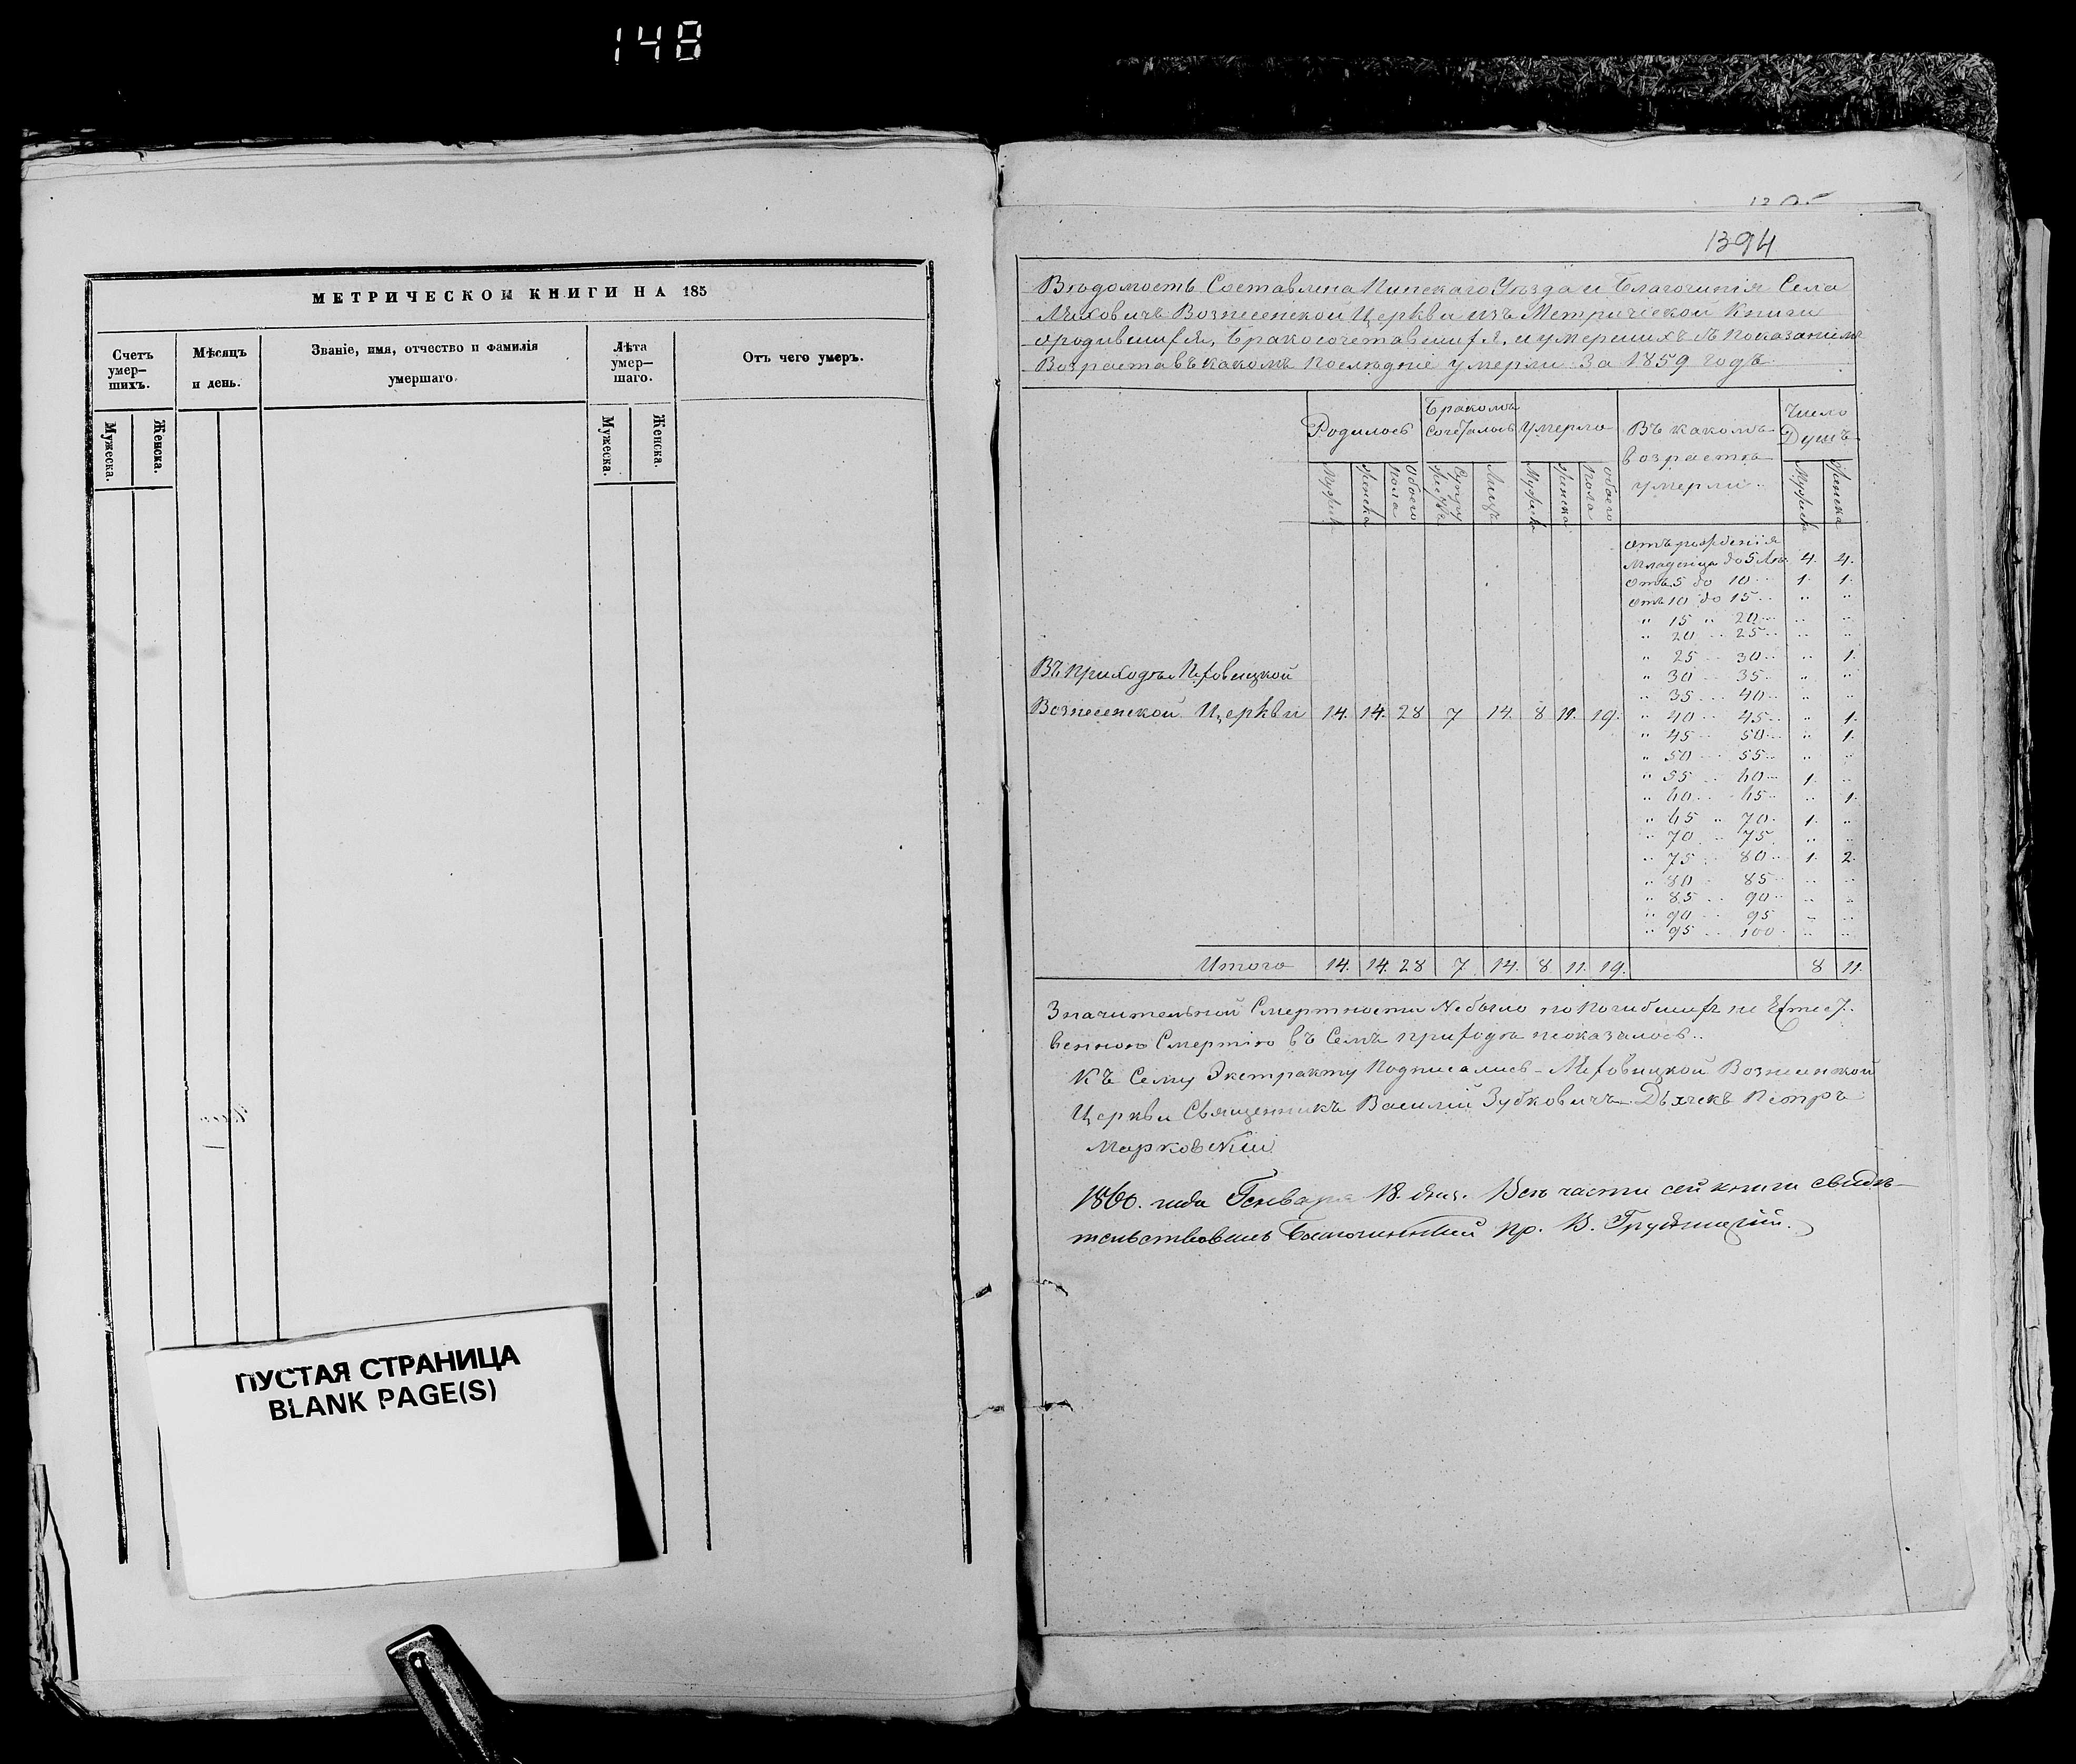 148
МЕТРИЧЕСКОЙ КНИГИ НА 185
Счетъ умер-
шихъ.
Мѣсяцъ
и день.
Званіе, имя, отчество и фамилія
умершаго.
Лѣта
умер-
шаго.
Отъ чего умеръ.
Мужеска.
Женска.
Мужеска.
Женска.
ПУСТАЯ СТРАНИЦА
BLANK PAGE(S)
1394
Вѣдомость Составлена Пинскаго Уѣзда и Благочинія Села
Вознесенской Церкви изъ Метрической Книги
ородившихся, Бракосочетавшихся, и умершихъ съ Показаніемъ
Возраста въ какомъ Послѣдніе умерли. За 1859 годъ.
Родилось
Бракомъ
сочеталось
умерло
Въ какомъ
возрастѣ
умерли.
Число
Душъ
Мужеска
Женска
Обоего
Пола
Супру
жествъ
Лицъ
Мужеска
Женска
Обоего
Пола
Мужеска
Женска
отъ рожденія
Младенца до 5 лѣт. 4. 4.
отъ 5 до 10 1. 1.
отъ 10 до 15 " "
" 15 " 20 " "
" 20 " 25 " "
" 25 " 30 " 1.
" 30 " 35 " "
" 35 " 40 " "
" 40 " 45 " 1.
" 45 " 50 " 1.
" 50 " 55 " "
" 55 " 60 1. "
" 60 " 65 " 1.
" 65 " 70 1. "
" 70 " 75 " "
" 75 " 80 1. 2.
" 80 " 85 " "
" 85 " 90 " "
" 90 " 95 " "
" 95 " 100 " "
Въ Приходѣ
Вознесенской Церкви 14. 14. 28 7 14. 8 11. 19.
Итого 14. 14. 28 7 14. 8 11. 19. 8 11.
Значительной Смертности Небыло по Погибших не Естест-
венною Смертію въ Семъ приходѣ неоказалось..
Къ Сему Экстракту Подписались - Вознесенской
Церкви Священникъ Василій Зубковичъ Дьячекъ Петръ
Марковскій
1860. года Генваря 18 дня. Всѣ части сей книги свидѣ-
тельствовалъ Благочинный пр. В.